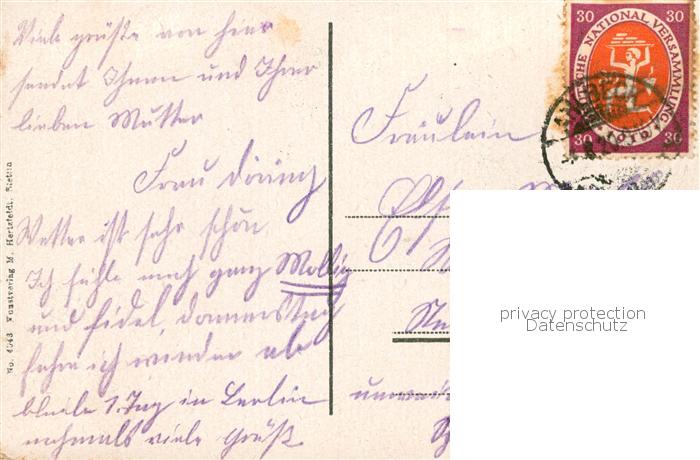 Viele Grüße von hier
sendet Ihnen und Ihrer
lieben Mutter
Frau Döring
Wetter ist sehr schön
Ich fühle mich ganz Mollig
und fidel, Donnerstag
fahre ich wieder ab
bleibe 1. Tag in Berlin
nochmals viele Grüße
No. 4943 Kunstverlag M. Herzfeldt, Stettin
Fräulein
30 30
DEUTSCHE NATIONAL VERSAMMLUNG
1919
30 30
privacy protection
Datenschutz